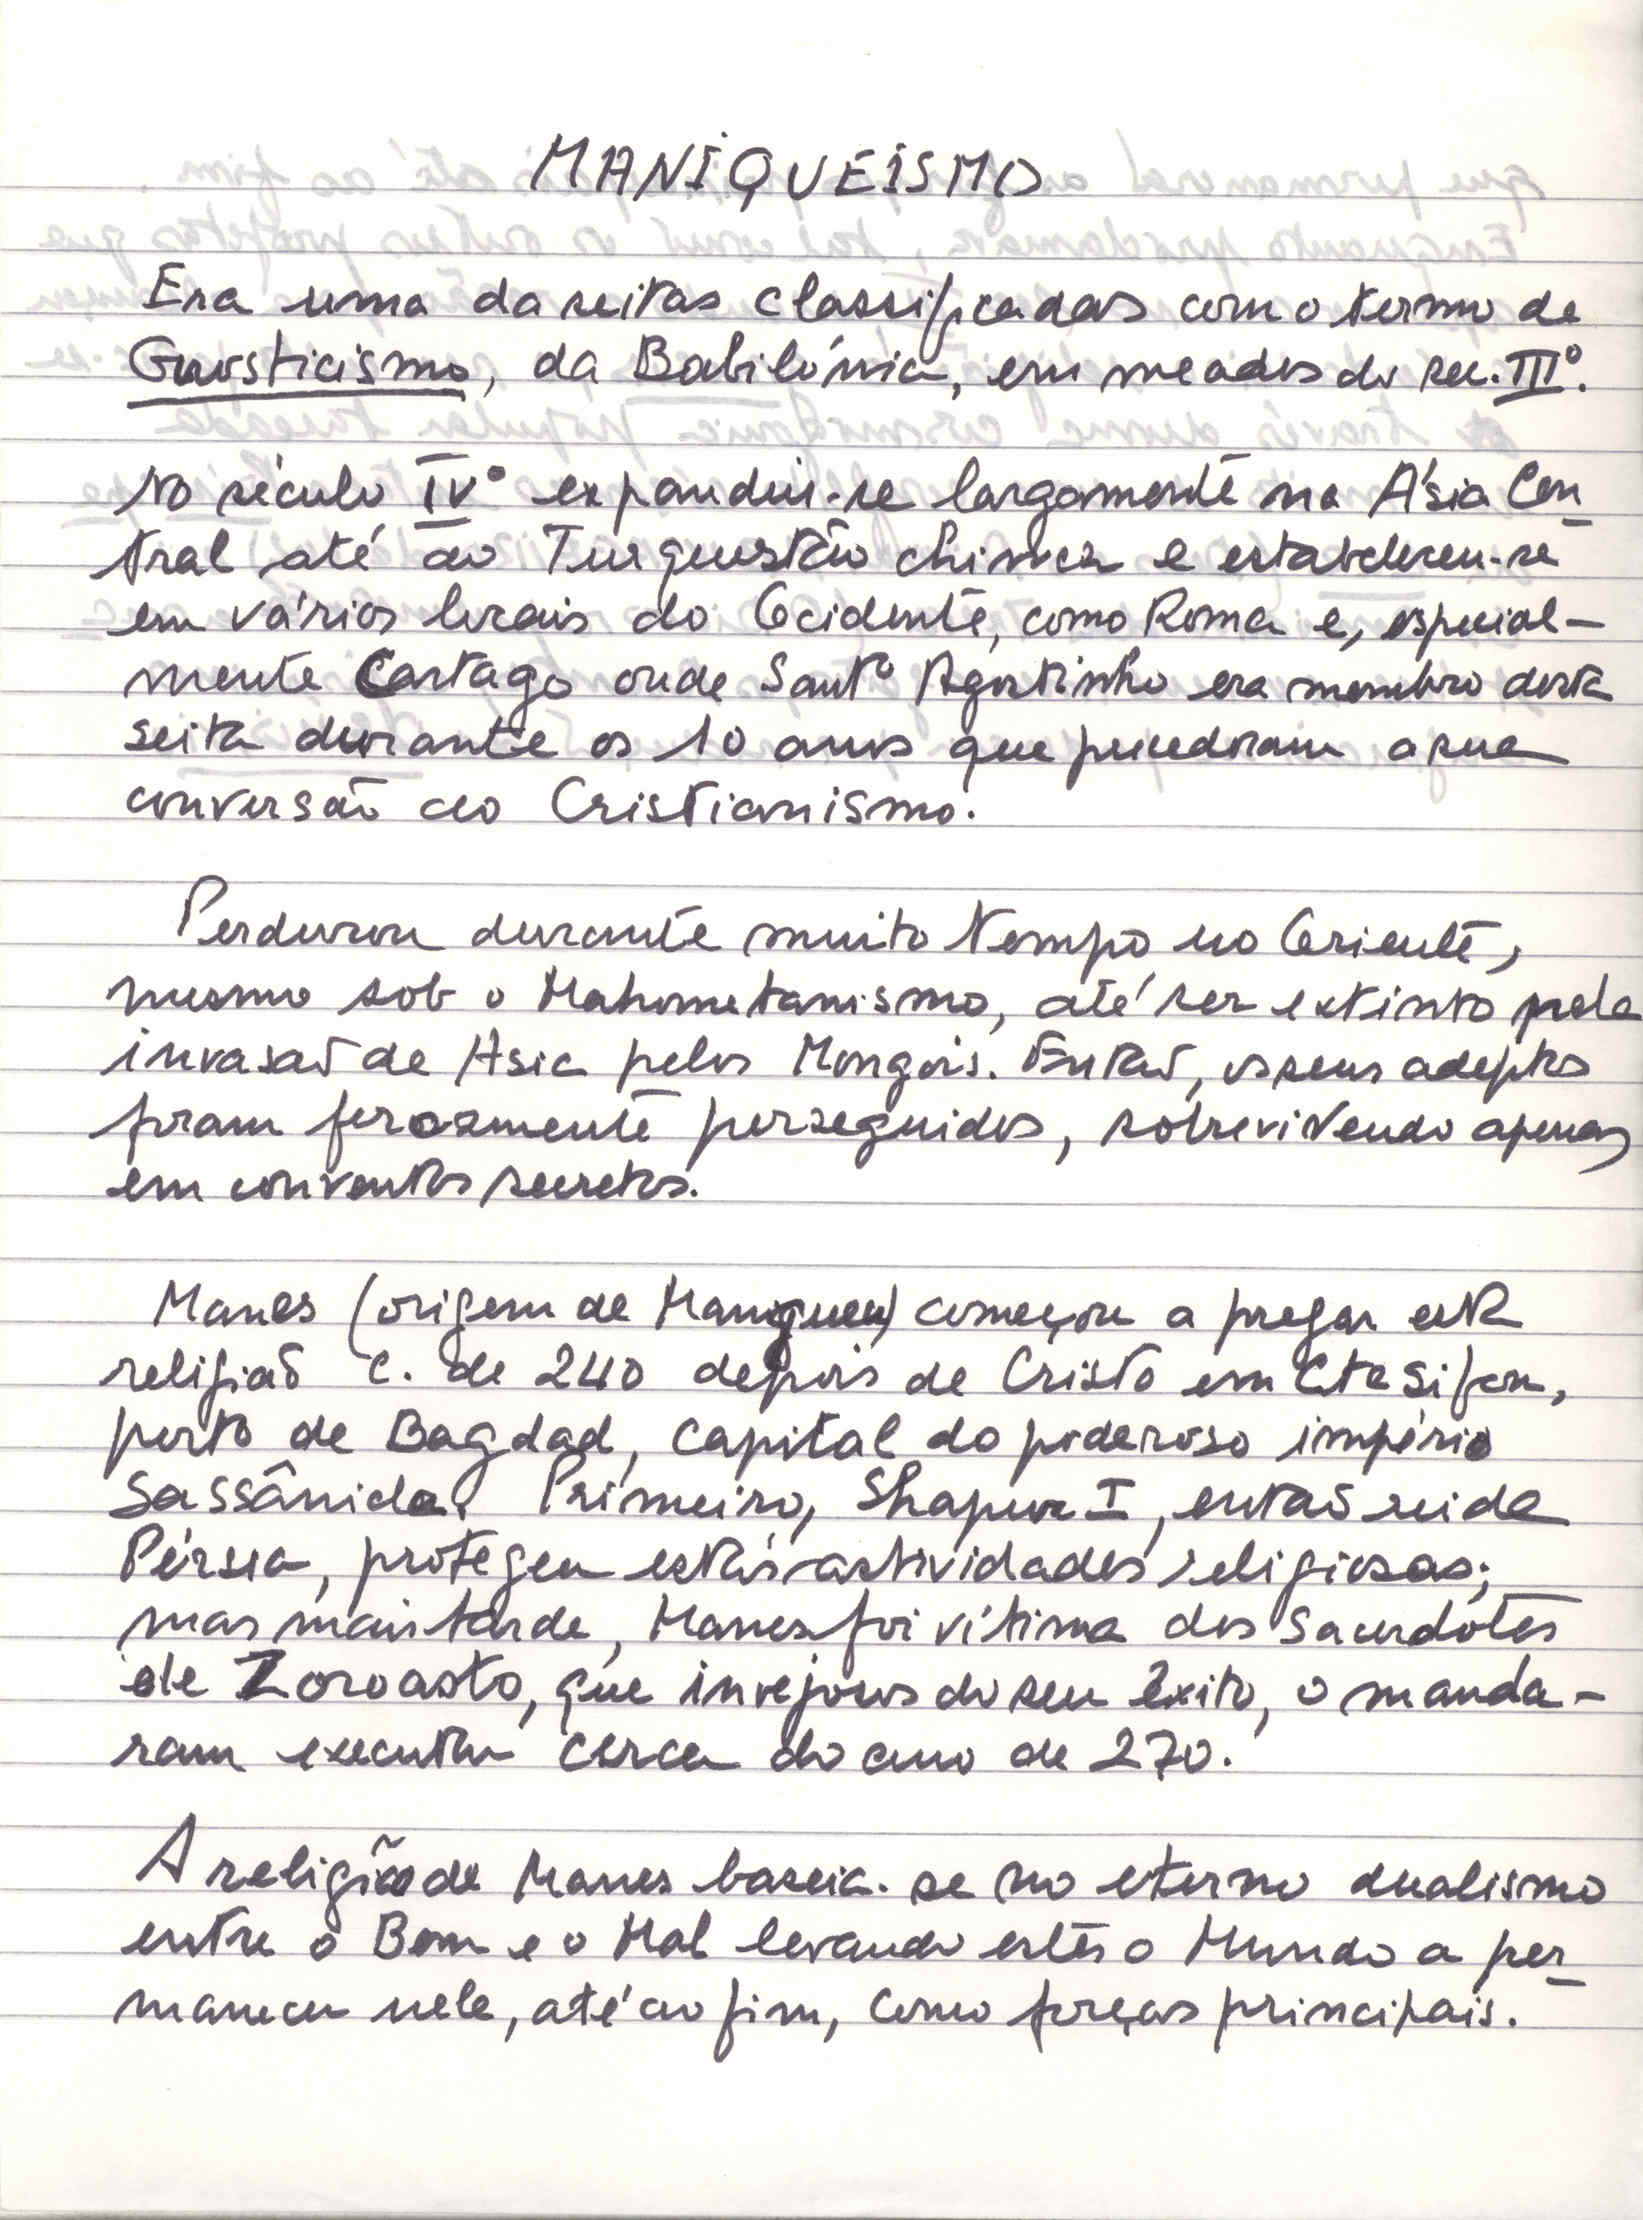 MANIQUEISMO
Era uma da seitas classificadas com o termo de
Gnosticismo, da Babilónia, em meados do sec. IIIº.
No século IVº expandiu-se largamente na Ásia Cen-
tral até ao Turquestão chinês e estabeleceu-se
em vários locais do Ocidente, como Roma e, especial-
mente Cartago onde Santº Agostinho era membro desta
seita durante os 10 anos que precederam a sua
conversão ao Cristianismo.
Perdurou durante muito tempo no Oriente,
mesmo sob o Mahometanismo, até ser extinto pela
invasão de Asia pelos Mongois. Então, os seus adeptos
foram ferozmente perseguidos, sobrevivendo apenas
em conventos secretos.
Manes (origem de Maniqueu) começou a pregar esta
religião c. de 240 depois de Cristo em Ctesifon,
perto de Bagdad, capital do poderoso império
Sassânida. Primeiro, Shapur I, então rei da
Pérsia, protegeu estas actividades religiosas;
mas mais tarde, Manes foi vítima dos Sacerdotes
de Zoroasto, que invejosos do seu êxito, o manda-
ram executar cerca do ano de 270.
A religião de Manes baseia-se no eterno dualismo
entre o Bem e o Mal levando estes o Mundo a per-
manecer nele, até ao fim, como forças principais.